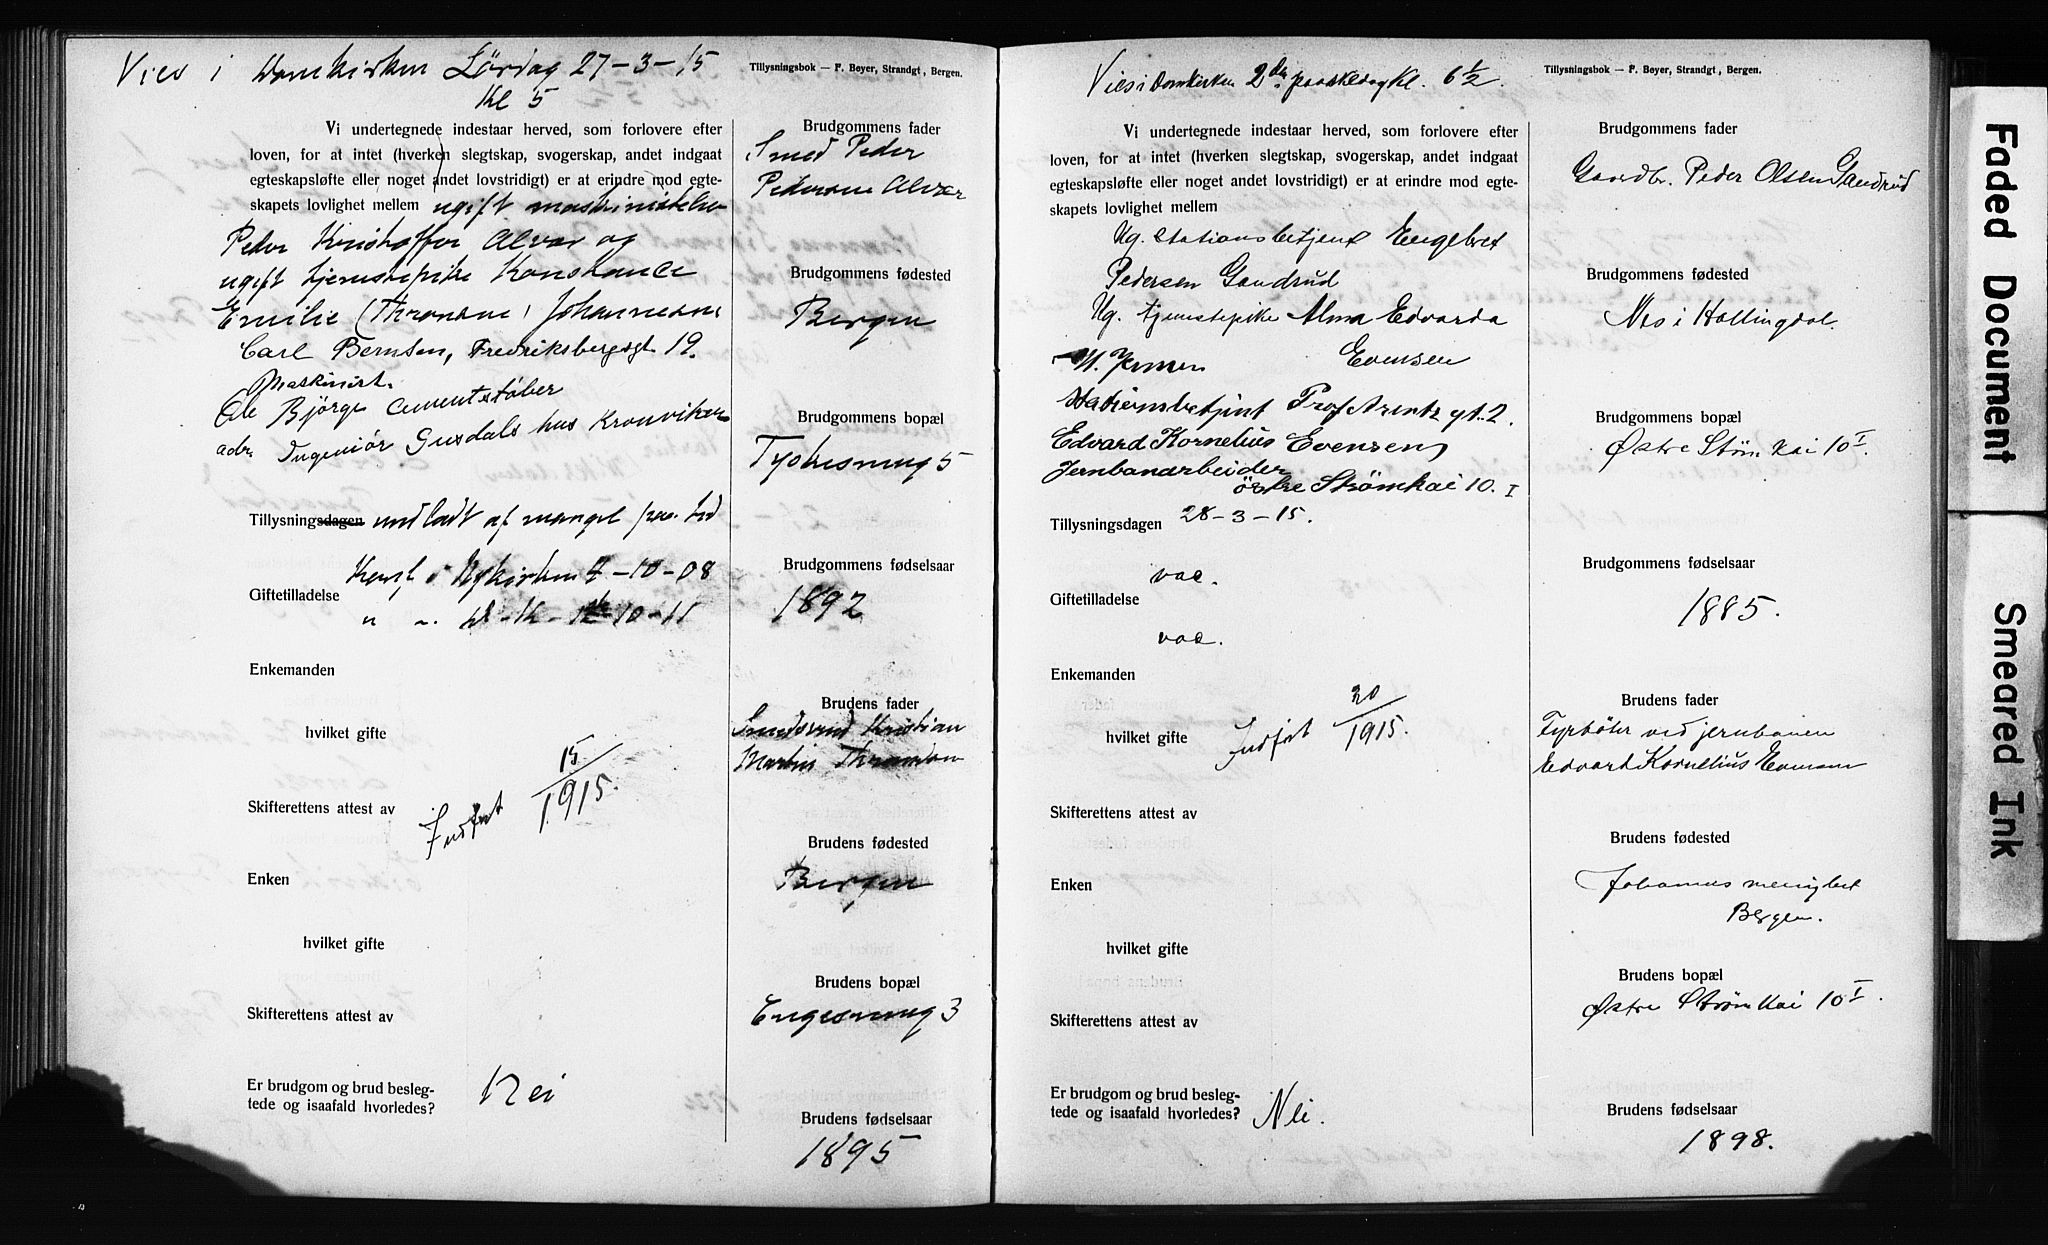 Vies i Domkirken Lördag 27-3-15
Kl 5
Tillysningsbok — F. Beyer, Strandgt, Bergen.
Vi undertegnede indestaar herved, som forlovere efter
loven, for at intet (hverken slegtskap, svogerskap, andet indgaat
egteskapsløfte eller noget andet lovstridigt) er at erindre mod egte-
skapets lovlighet mellem ugift maskinistelev
Peder Kristoffer Alvær og
ugift tjenestepike Konstance
Emilie (Thronsen) Johannesen
Carl Bernsen, Fredriksbergsgt 19.
Maskinist.
Ole Bjørge Cementstøber
adr. Ingeniör Gusdals hus Kronviken
Tillysningsdagen undladt af mangel paa tid
Konf. i Nykirken 4-10-08
Giftetilladelse
" 10-11
Enkemanden
hvilket gifte
Indført 15/1915.
Skifterettens attest av
Enken
hvilket gifte
Skifterettens attest av
Er brudgom og brud besleg-
tede og isaafald hvorledes? Nei
Brudgommens fader
Smed Peder
Pedersen Alvær
Brudgommens fødested
Bergen
Brudgommens bopæl
Tyskesmug 5
Brudgommens fødselsaar
1892
Brudens fader
Smedsvend Kristian
Martin Thronsen
Brudens fødested
Bergen
Brudens bopæl
Engesmug 3
Brudens fødselsaar
1895
Vies i Domkirken 2den paaskedag Kl. 6½.
Tillysningsbok — F. Beyer, Strandgt, Bergen.
Vi undertegnede indestaar herved, som forlovere efter
loven, for at intet (hverken slegtskap, svogerskap, andet indgaat
egteskapsløfte eller noget andet lovstridigt) er at erindre mod egte-
skapets lovlighet mellem
Ug. Stationsbetjent Engebret
Pedersen Gandrud
Ug. tjenestepike Alma Edvarda
Evensen
Stationsbetjent Prof Arentz gt. 2.
Edvard Kornelius Evensen
Jernbanarbeider
östre Strømkai 10. I
Tillysningsdagen 28-3-15.
vac.
Giftetilladelse
vac.
Enkemanden
hvilket gifte Indført 20/1915.
Skifterettens attest av
Enken
hvilket gifte
Skifterettens attest av
Er brudgom og brud besleg-
tede og isaafald hvorledes? Nei.
Brudgommens fader
Gaardbr. Peder Olsen Gandrud
Brudgommens fødested
Nes i Hallingdal.
Brudgommens bopæl
Østre Strømkai 10 I.
Brudgommens fødselsaar
1885.
Brudens fader
Fyrbøter ved jernbanen
Edvard Kornelius Evensen
Brudens fødested
Johannes menighet
Bergen.
Brudens bopæl
Østre Strømkai 10 I.
Brudens fødselsaar
1898.
Faded Document
Smeared Ink